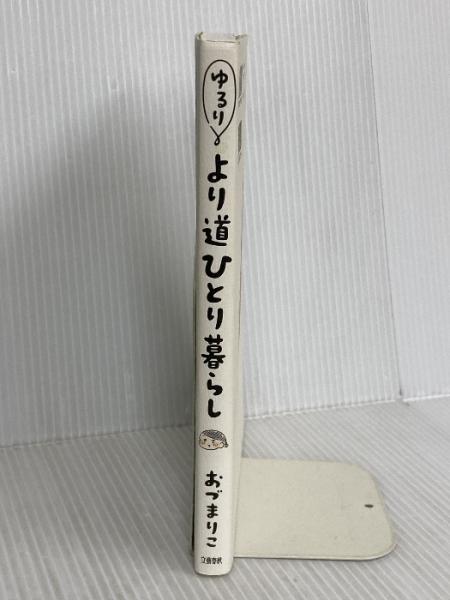 ゆるり
より道ひとり暮らし
おづまりこ
文藝春秋